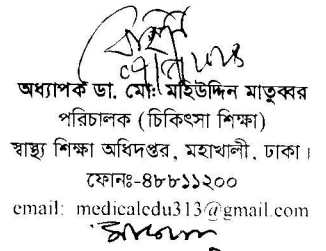 অধ্যাপক ডা. মোঃ মহিউদ্দিন মাতুব্বর
পরিচালক (চিকিৎসা শিক্ষা)
স্বাস্থ্য শিক্ষা অধিদপ্তর, মহাখালী, ঢাকা।
ফোনঃ-৪৮৮১১২০০
email: medicaledu313@gmail.com